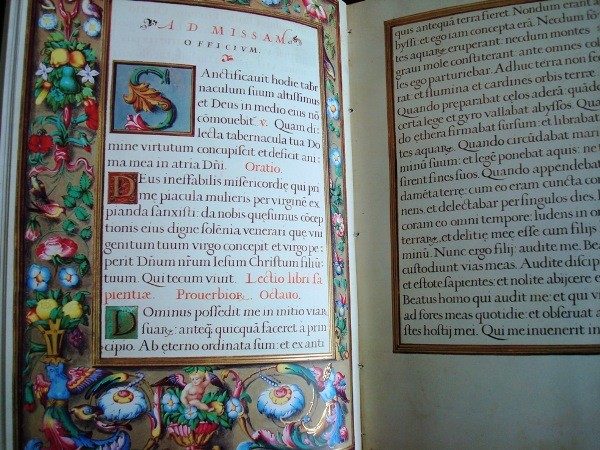 AD MISSAM
OFFICIVM.
Sanctificauit hodie tabr
naculum suum altissimus
et Deus in medio eius nō
cōmouebit͛. Quam di
lecta tabernacula tua Do
mine virtutum concupiscit et deficit ani
ma mea in atria Dñi. Oratio.
DEus ineffabilis misericordię qui pri
mę piacula mulieris per virginē ex
pianda sanxisti: da nobis quęsumus cōcep
tionis eius digne solēnia venerari, quę vir
genitum tuum virgo concepit et virgo pe
perit Dñum nr̄um Iesum Christum filiū
tuum. Qui tecum viuit. Lectio libri sa
pientiæ. Prouerbior. Octauo.
Dominus possedit me in initio viar
suarꝝ: anteq̄ quicquā faceret a prin
cipio. Ab eterno ordinata sum: et ex anti
quis antequā terra fieret. Nondum erant
byssi: et ego iam concepta erā. Necdum fō
tes aquarꝝ eruperant: necdum montes
graui mole constiterant: ante omnes col
les ego parturiebar. Adhuc terra non fe
rat: et flumina et cardines orbis terrę.
Quando preparabat celos aderā quādo
certa lege et gyro vallabat abyssos. Quan
do ethera firmabat sursum: et librabat
tes aquarꝝ. Quando circūdabat mari
minū suum: et legē ponebat aquis: ne
sirent fines suos. Quando appendebat
damēta terrę: cum eo eram cuncta com
nens, et delectabar per singulos dies.
coram eo omni tempore: ludens in or
terrarꝝ, et delitię meę esse cum filijs
minū. Nunc ergo filij: audite me. Bea
custodiunt vias meas. Audite discip
et estote sapientes: et nolite abijcere e
Beatus homo qui audit me: et qui vi
ad fores meas quotidie: et obseruat a
stes hostij mei. Qui me inuenerit in